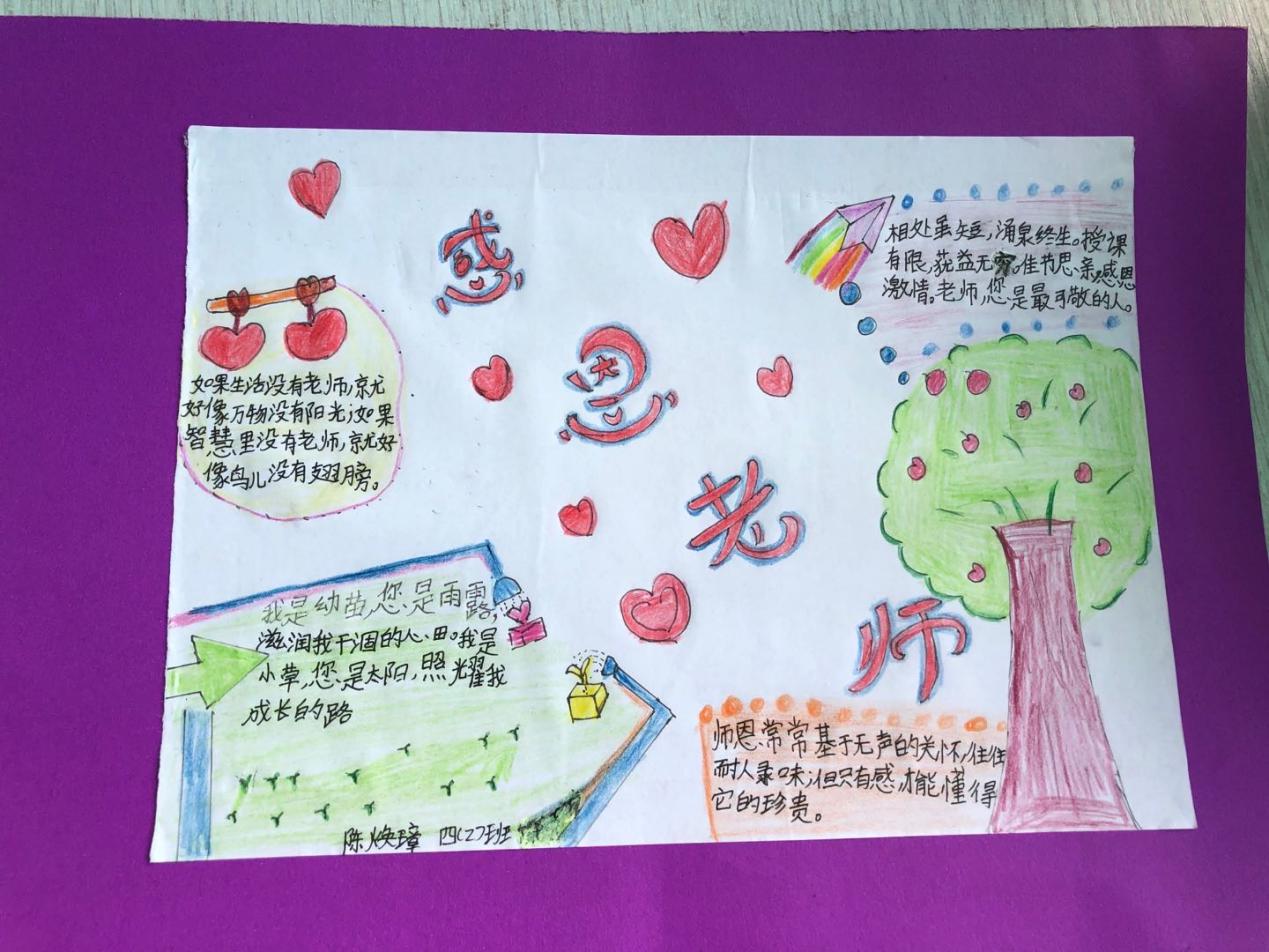 感
恩
老
师
相处虽短,涌泉终生。授课
有限,获益无穷。佳节思亲,感恩
激情。老师,您是最可敬的人。
如果生活没有老师,就
好像万物没有阳光;如果
智慧里没有老师,就好
像鸟儿没有翅膀。
我是幼苗,您是雨露,
滋润我干涸的心田。我是
小草,您是太阳,照耀我
成长的路
陈焕璋 四(2)班
师恩常常基于无声的关怀,往往
耐人录味;但只有感,才能懂得
它的珍贵。